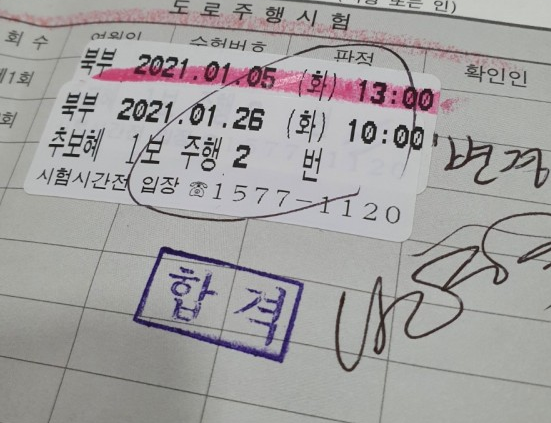 도로주행시험
회 수 수험번호 판정 확인인
제1회
북부 2021.01.05 (화) 13:00
북부 2021.01.26 (화) 10:00
변경
추보혜 1보 주행 2 번
시험시간전 입장 ☎1577-1120
합격